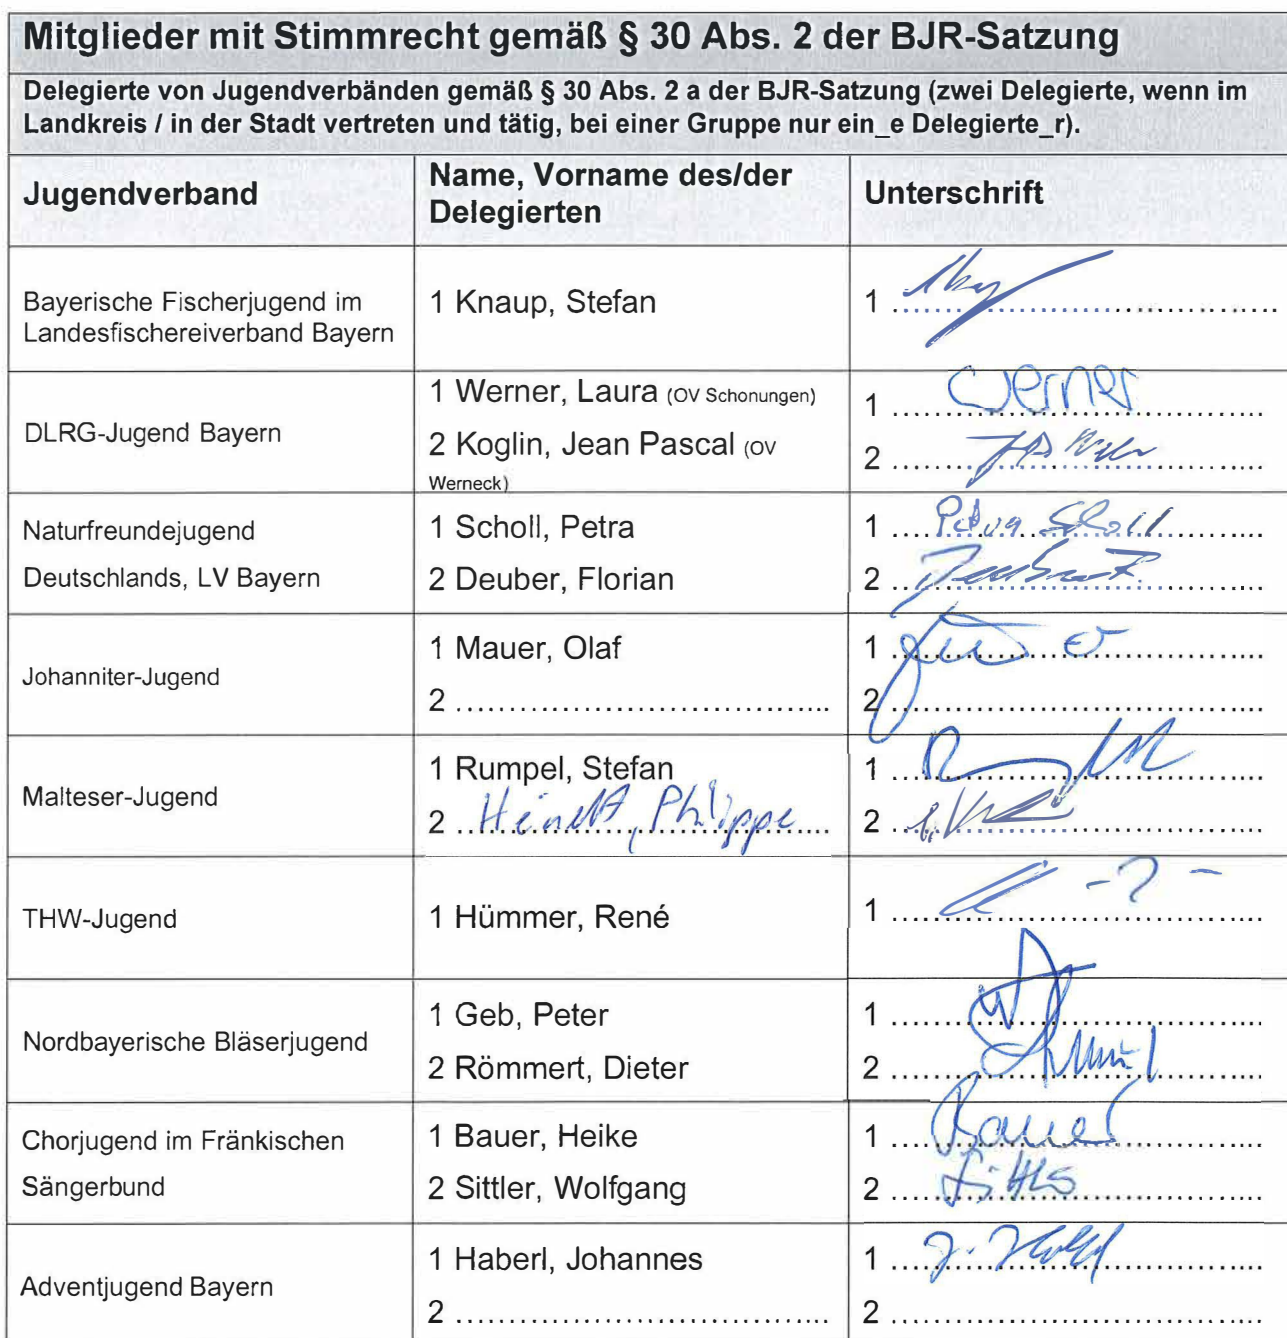 Mitglieder mit Stimmrecht gemäß § 30 Abs. 2 der BJR-Satzung
Delegierte von Jugendverbänden gemäß § 30 Abs. 2 a der BJR-Satzung (zwei Delegierte, wenn im
Landkreis / in der Stadt vertreten und tätig, bei einer Gruppe nur ein_e Delegierte_r).
Jugendverband
Name, Vorname des/der
Delegierten
Unterschrift
Bayerische Fischerjugend im
Landesfischereiverband Bayern
1 Knaup, Stefan
1
DLRG-Jugend Bayern
1 Werner, Laura (OV Schonungen)
2 Koglin, Jean Pascal (OV
Werneck)
1 Werner
2
Naturfreundejugend
Deutschlands, LV Bayern
1 Scholl, Petra
2 Deuber, Florian
1 Petra Scholl
2
Johanniter-Jugend
1 Mauer, Olaf
2
1
2
Malteser-Jugend
1 Rumpel, Stefan
2 Philippe
1
2
THW-Jugend
1 Hümmer, René
1 - ? -
Nordbayerische Bläserjugend
1 Geb, Peter
2 Römmert, Dieter
1
2
Chorjugend im Fränkischen
Sängerbund
1 Bauer, Heike
2 Sittler, Wolfgang
1 Bauer
2
Adventjugend Bayern
1 Haberl, Johannes
2
1
2